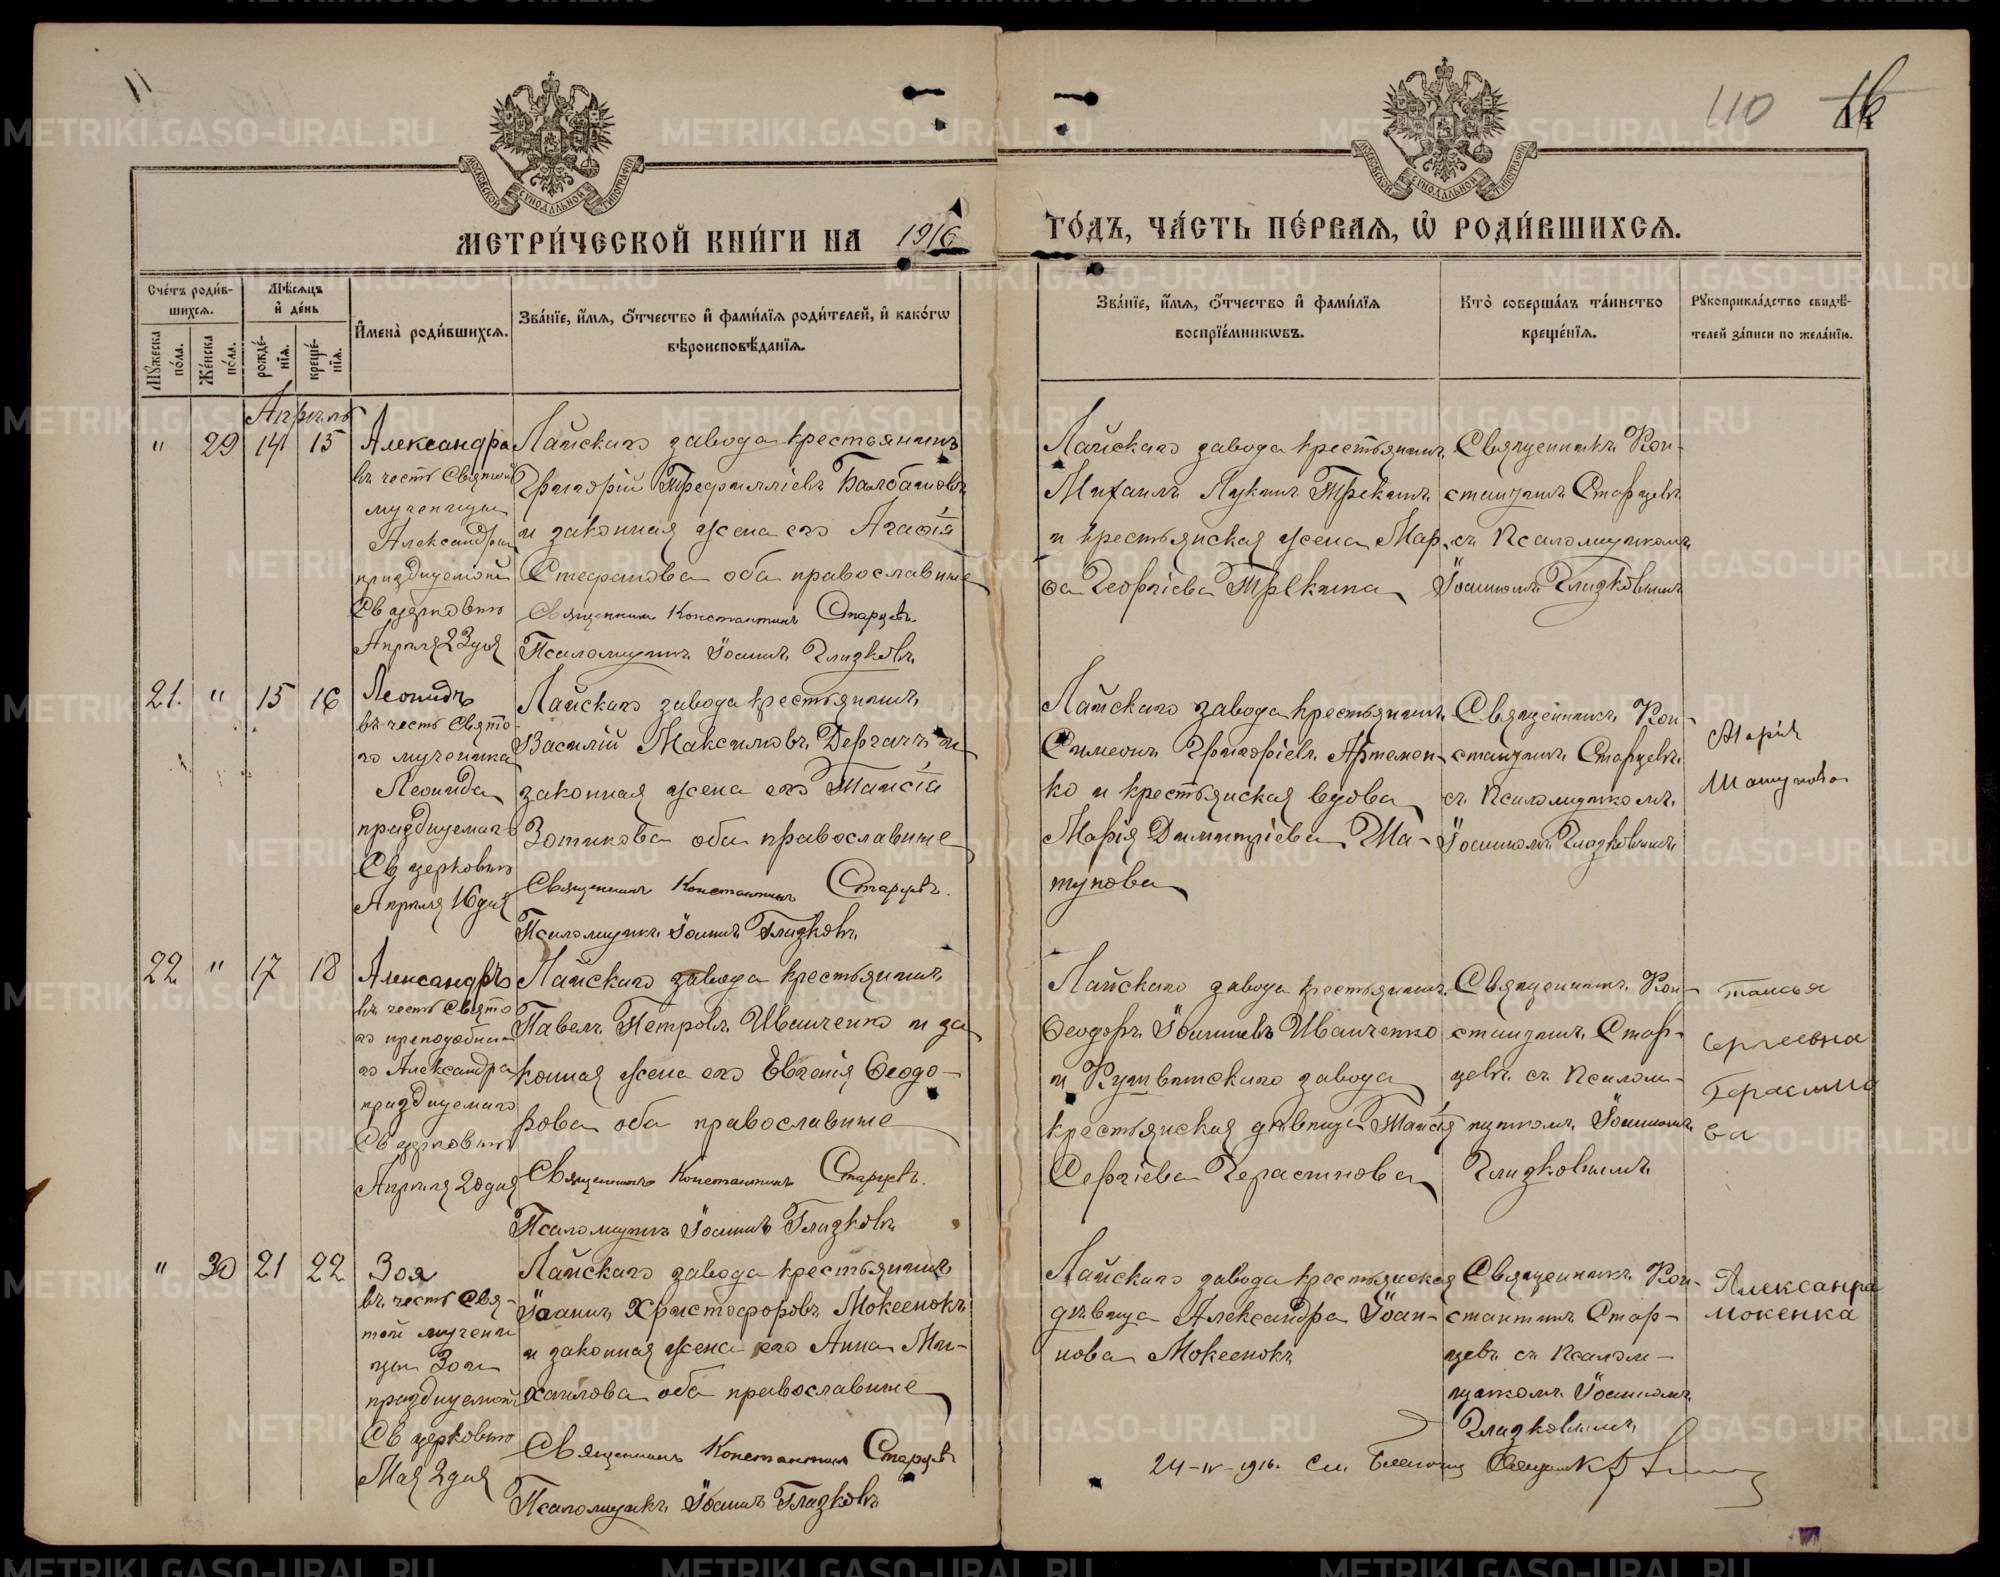 11
110
16
МОСКОВСКОЙ СѴНОДАЛЬНОЙ ТИПОГРАФІИ
МОСКОВСКОЙ СѴНОДАЛЬНОЙ ТИПОГРАФІИ
МЕТРИ́ЧЕСКОЙ КНИ́ГИ НА 1916
ГО́ДЪ, ЧА́СТЬ ПЕ́РВАЯ, Ѡ҆ РОДИ́ВШИХСЯ.
Сче́тъ роди́в-
шихся.
Му́жеска по́ла.
Же́нска по́ла.
Мѣ́сяцъ
и҆ де́нь
рожде́-
нїя.
креще́-
нїя.
И҆мена̀ роди́вшихся.
Зва́нїе, и҆́мя, ѻ҆́тчество и҆ фами́лїя роди́телей, и҆ како́гѡ
вѣроисповѣ́данїя.
Зва́нїе, и҆́мя, ѻ҆́тчество и҆ фами́лїя
воспрїе́мникѡвъ.
Кто̀ соверша́лъ та́инство
креще́нїя.
Рꙋкоприкла́дство свидѣ́-
телей за́писи по жела́нїю.
Апрѣль
" 29 14 15
Александра
въ честь Святой
мученицы
Александры
празднуемой
Св церковью
Апреля 23 дня
Лайскаго завода крестьянинъ
Григорій Трефилліевъ Балбашовъ
и законная жена его Агафія
Стефанова оба православные
Священникъ Константинъ Старцевъ.
Псаломщикъ Іоаннъ Глизковъ.
Лайскаго завода крестьянинъ
Михаилъ Лукинъ Трекинъ
и крестьянская жена Мар-
ѳа Георгіева Трекина
Священникъ Кон-
стантинъ Старцевъ
съ Псаломщикомъ
Іоанномъ Глизковымъ
21. " 15 16
Леонидъ
въ честь Свято-
го мученика
Леонида
празднуемаго
Св церковью
Апреля 16 дня
Лайскаго завода крестьянинъ
Василій Максимовъ Дергачъ и
законная жена его Таисія
Зотикова оба православные
Священникъ Константинъ Старцевъ.
Псаломщикъ Іоаннъ Глизковъ.
Лайскаго завода крестьянинъ
Симеонъ Григоріевъ Артемен-
ко и крестьянская вдова
Марія Димитріева Ша-
тунова
Священникъ Кон-
стантинъ Старцевъ
съ Псаломщикомъ
Іоанномъ Глизковымъ
Марія
Шатунова
22 " 17 18
Александръ
въ честь Свято
го преподобна
го Александра
празднуемаго
Св церковью
Апреля 20 дня
Лайскаго завода крестьянинъ
Павелъ Петровъ Иванченко и за
конная жена его Евгенія Ѳеодо-
рова оба православные
Священникъ Константинъ Старцевъ.
Псаломщикъ Іоаннъ Глизковъ
Лайскаго завода крестьянинъ
Ѳеодоръ Іоанновъ Иванченко
и Кушвинскаго завода
крестьянская дѣвица Таисія
Сергіева Герасимова
Священникъ Кон-
стантинъ Стар-
цевъ съ Псалом-
щикомъ Іоанномъ
Глизковымъ
Таисья
Сергеевна
Герасимо
ва
" 30 21 22
Зоя
въ честь Свя-
той мучени
цы Зои
празднуемой
Св церковью
Мая 2 дня
Лайскаго завода крестьянинъ
Іоаннъ Христофоровъ Мокеенокъ
и законная жена его Анна Ми-
хаилова оба православные
Священникъ Константинъ Старцевъ
Псаломщикъ Іоаннъ Глизковъ
Лайскаго завода крестьянская
дѣвица Александра Іоан-
нова Мокеенокъ
Священникъ Кон-
стантинъ Стар-
цевъ съ Псалом-
щикомъ Іоанномъ
Глизковымъ
Александра
мокенка
24-IV-1916.
METRIKI.GASO-URAL.RU